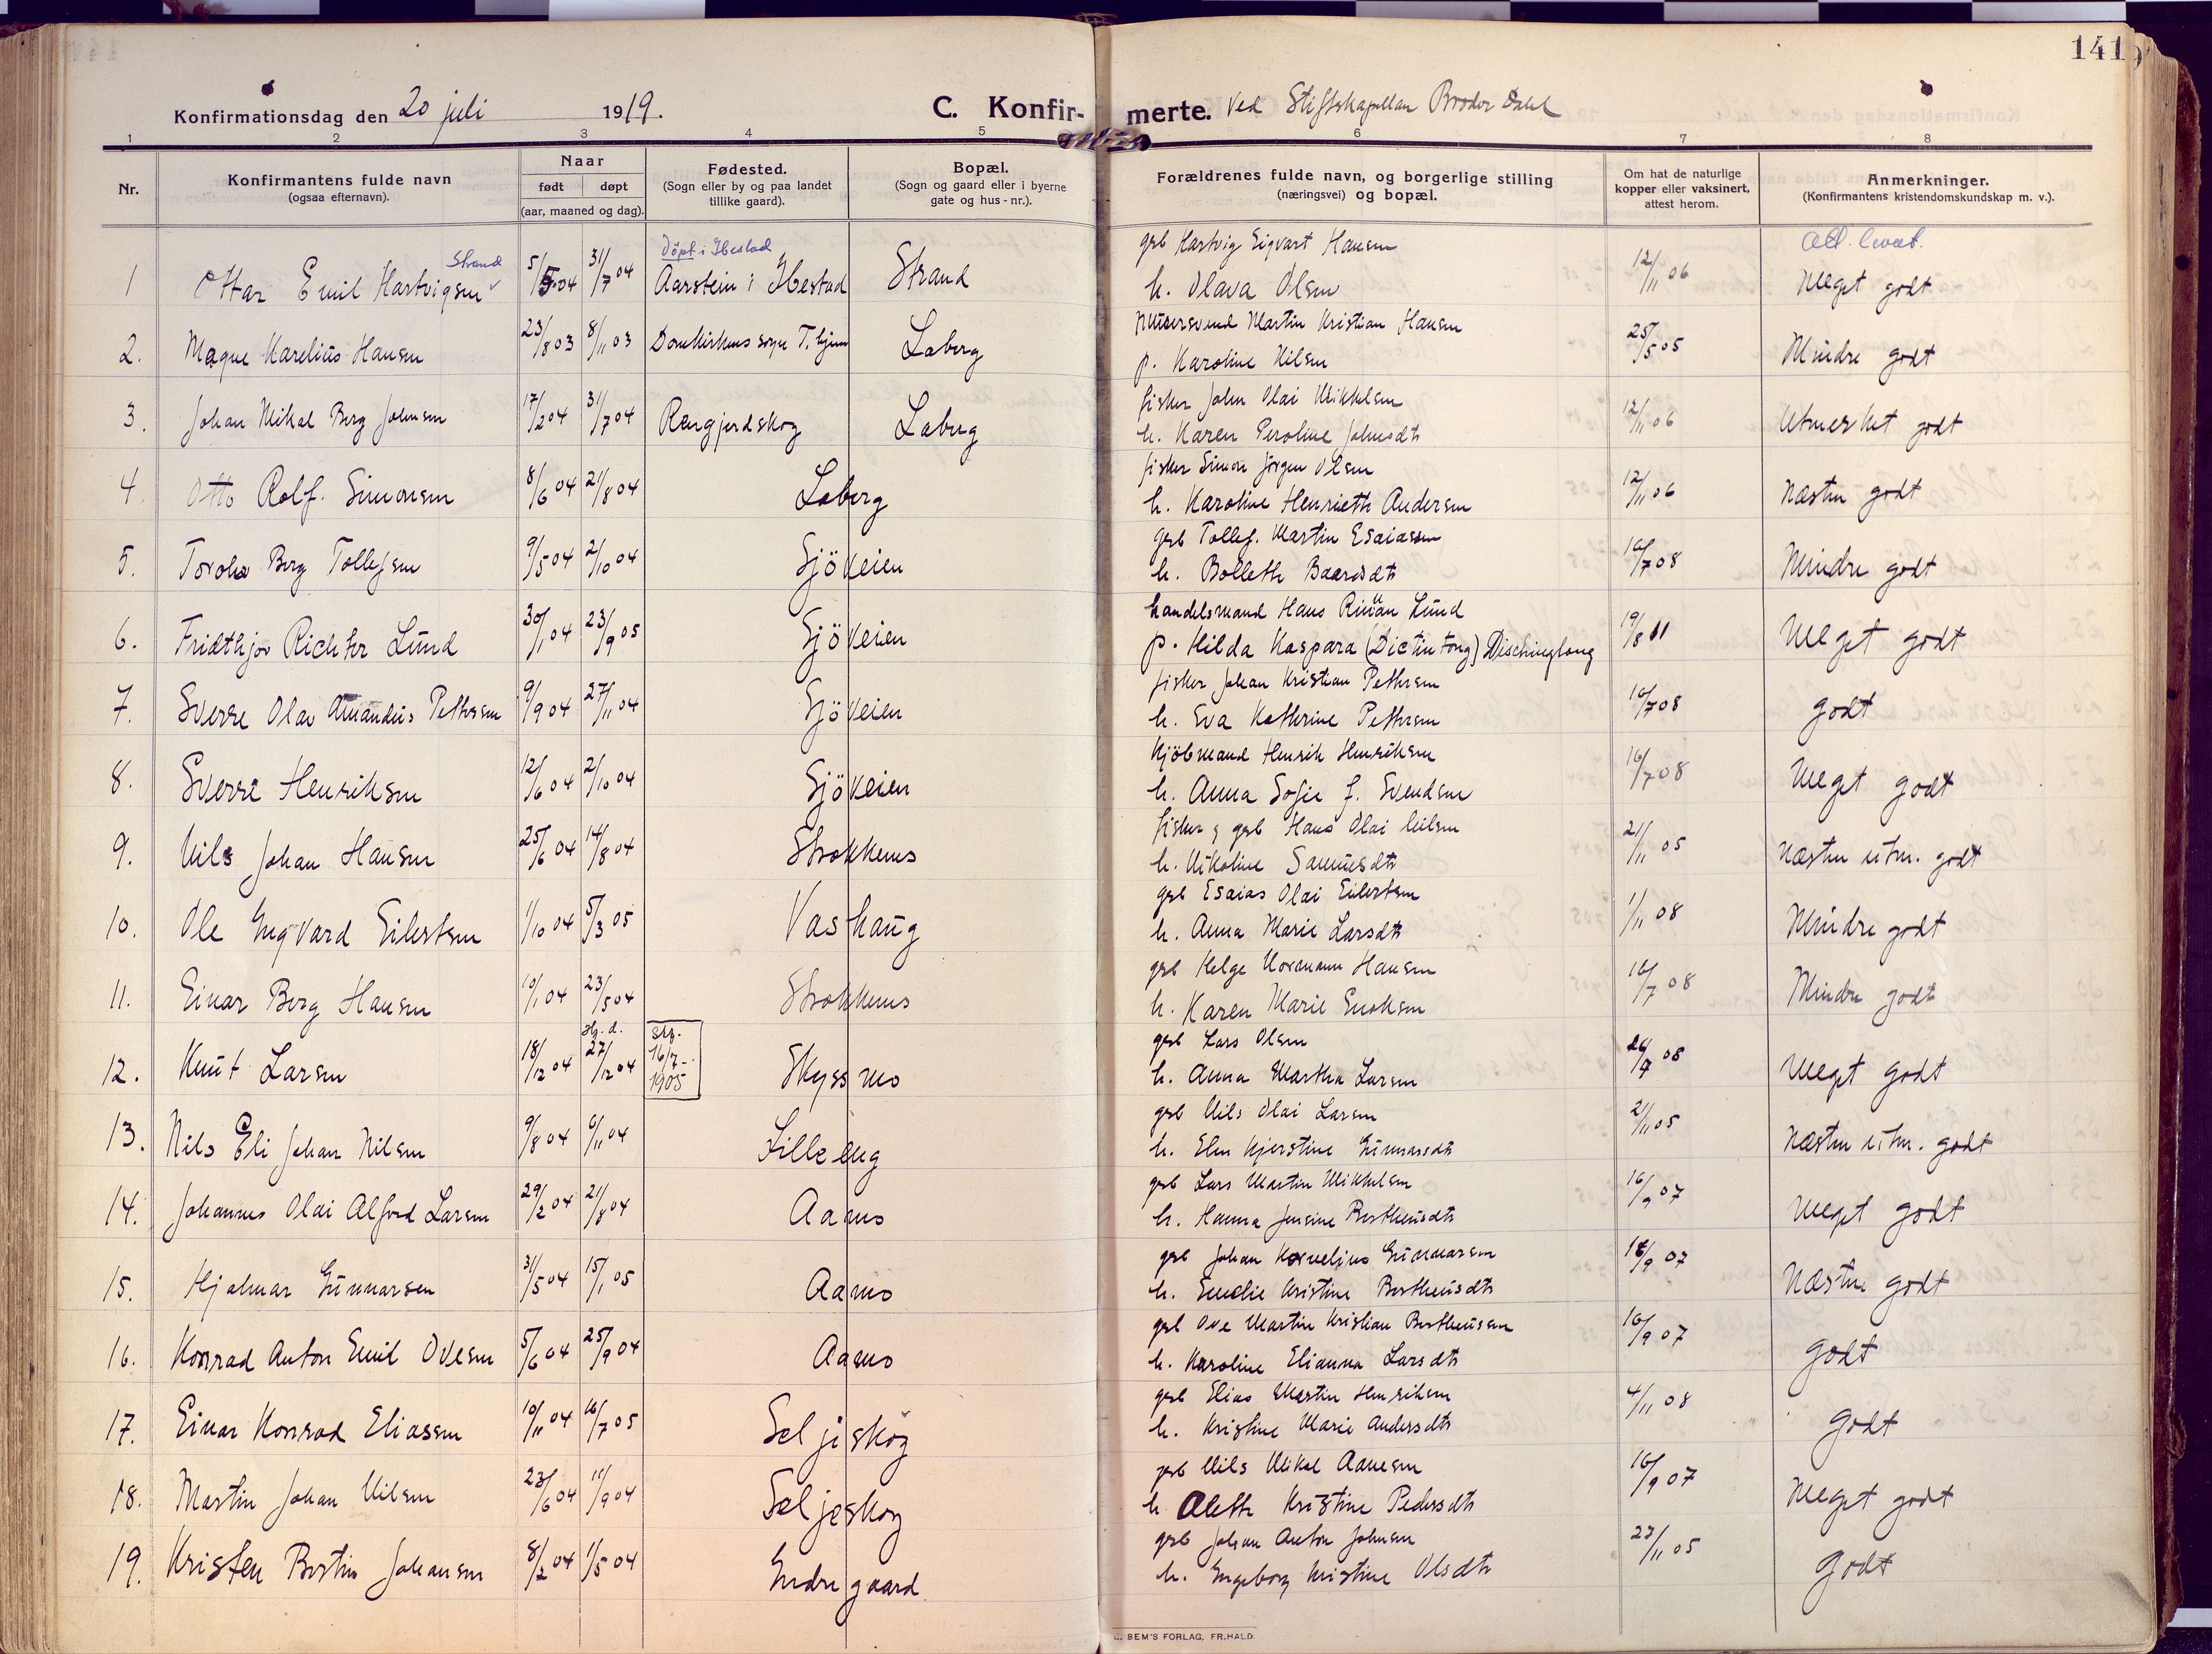 141
Konfirmationsdag den 20 juli 1919. C. Konfir-merte. Ved Stiftskapellan Broder Dahl
1 2 3 4 5 6 7 8
Nr. Konfirmantens fulde navn (ogsaa efternavn). Naar født døpt (aar, maaned og dag). Fødested. (Sogn eller by og paa landet tillike gaard). Bopæl. (Sogn og gaard eller i byerne gate og hus-nr.). Forældrenes fulde navn, og borgerlige stilling (næringsvei) og bopæl. Om hat de naturlige kopper eller vaksinert, attest herom. Anmerkninger. (Konfirmantens kristendomskundskap m. v.).
Strand Döpt i Ibestad grb Hartvig Sigvart Hansen
1 Ottar Emil Hartvigsen 5/5 04 31/7 04 Aarstein i Ibestad Strand h. Olava Olsen 12/11 06 Meget godt
Martin Kristian Hansen
2. Magne Karelius Hansen 23/8 03 8/11 03 Domkirkens sogn T.hjem Laberg p. Karoline Nilsen 25/5 05 Mindre godt
fisker Johan Olai Mikkelsen
3. Johan Mikal Berg Johnsen 17/2 04 31/7 04 Laberg h. Karen Peroline Johnsdtr 12/11 06 Utmerket godt
fisker Simon Jørgen Olsen
4. Otto Rolf. Simonsen 8/6 04 21/8 04 Laberg h. Karoline Henriette Andersen 12/11 06 Næsten godt
grb Tollef. Martin Esaiassen
5. Berg Tollefsen 9/5 04 2/10 04 Sjöveien h. Bollette Baardsdtr 16/7 08 Mindre godt
handelsmand Hans Lund
6. Fridthjov Richter Lund 30/1 04 23/9 05 Sjöveien p. Hilda Kaspara (Dictintong) Dischingtong 19/8 11 Meget godt
fisker Johan Kristian Pettersen
7. Sverre Olav Amandus Pettersen 9/9 04 27/11 04 Sjöveien h. Eva Kathrine Pettersen 16/7 08 godt
Kjöbmand Henrik Henriksen
8. Sverre Henriksen 12/6 04 2/10 04 Sjöveien h. Anna Sofie f. Svendsen 16/7 08 Meget godt
fisker g grb Hans Olai Nilsen
9. Nils Johan Hansen 25/6 04 14/8 04 Strokkenes h. Nikoline 21/11 05 Næsten utm. godt
grb Esaias Olai Eilertsen
10. Ole Ingvard Eilertsen 1/10 04 5/3 05 Vashaug h. Anna Marie Larsdtr 1/11 08 Mindre godt
grb Helge Normann Hansen
11. Einar Berg Hansen 10/1 04 23/5 04 Strokkenes h. Karen Marie Enoksen 16/7 08 Mindre godt
Hj. d. Stf. 16/7 - 1905 grb Lars Olsen
12. Knut Larsen 18/12 04 27/12 04 Skyssmo h. Anna Martha Larsen Meget godt
grb Nils Olai Larsen
13. Nils Eli Johan Nilsen 9/8 04 6/11 04 Lilleeng h. Elen Kjerstine Gunnarsdtr 2/11 05 Næsten utm. godt
grb Lars Martin Mikkelsen
14. Johannes Olai Alfred Larsen 29/2 04 21/8 04 Aamo h. Hanna Jensine Bertheusdtr 16/9 07 Meget godt
grb Johan Kornelius Gunnarsen
15. Hjalmar Gunnarsen 31/5 04 15/1 05 Aamo h. Emelie Kristine Bertheusdtr 16/9 07 Næsten godt
grb Ove Martin Kristian Bertheussen
16. Konrad Anton Emil Ovesen 5/6 04 25/9 04 Aamo h. Karoline Elianna Larsdtr 16/9 07 godt
grb Elias Martin Henriksen
17. Einar Konrad Eliassen 10/11 04 16/7 05 Seljeskog h. Kristine Marie Andersdtr 4/11 08 godt
grb Nils Mikal Aanesen
18. Martin Johan Nilsen 23/6 04 11/9 04 Seljeskog h Alette Kristine Pedersdtr 16/9 07 Meget godt
grb Johan Anton Johnsen
19. Kristen Bertin Johansen 8/2 04 1/5 04 Indregaard h. Ingeborg Kristine Olsdtr 27/11 05 godt
SEM'S FORLAG, FR.HALD.